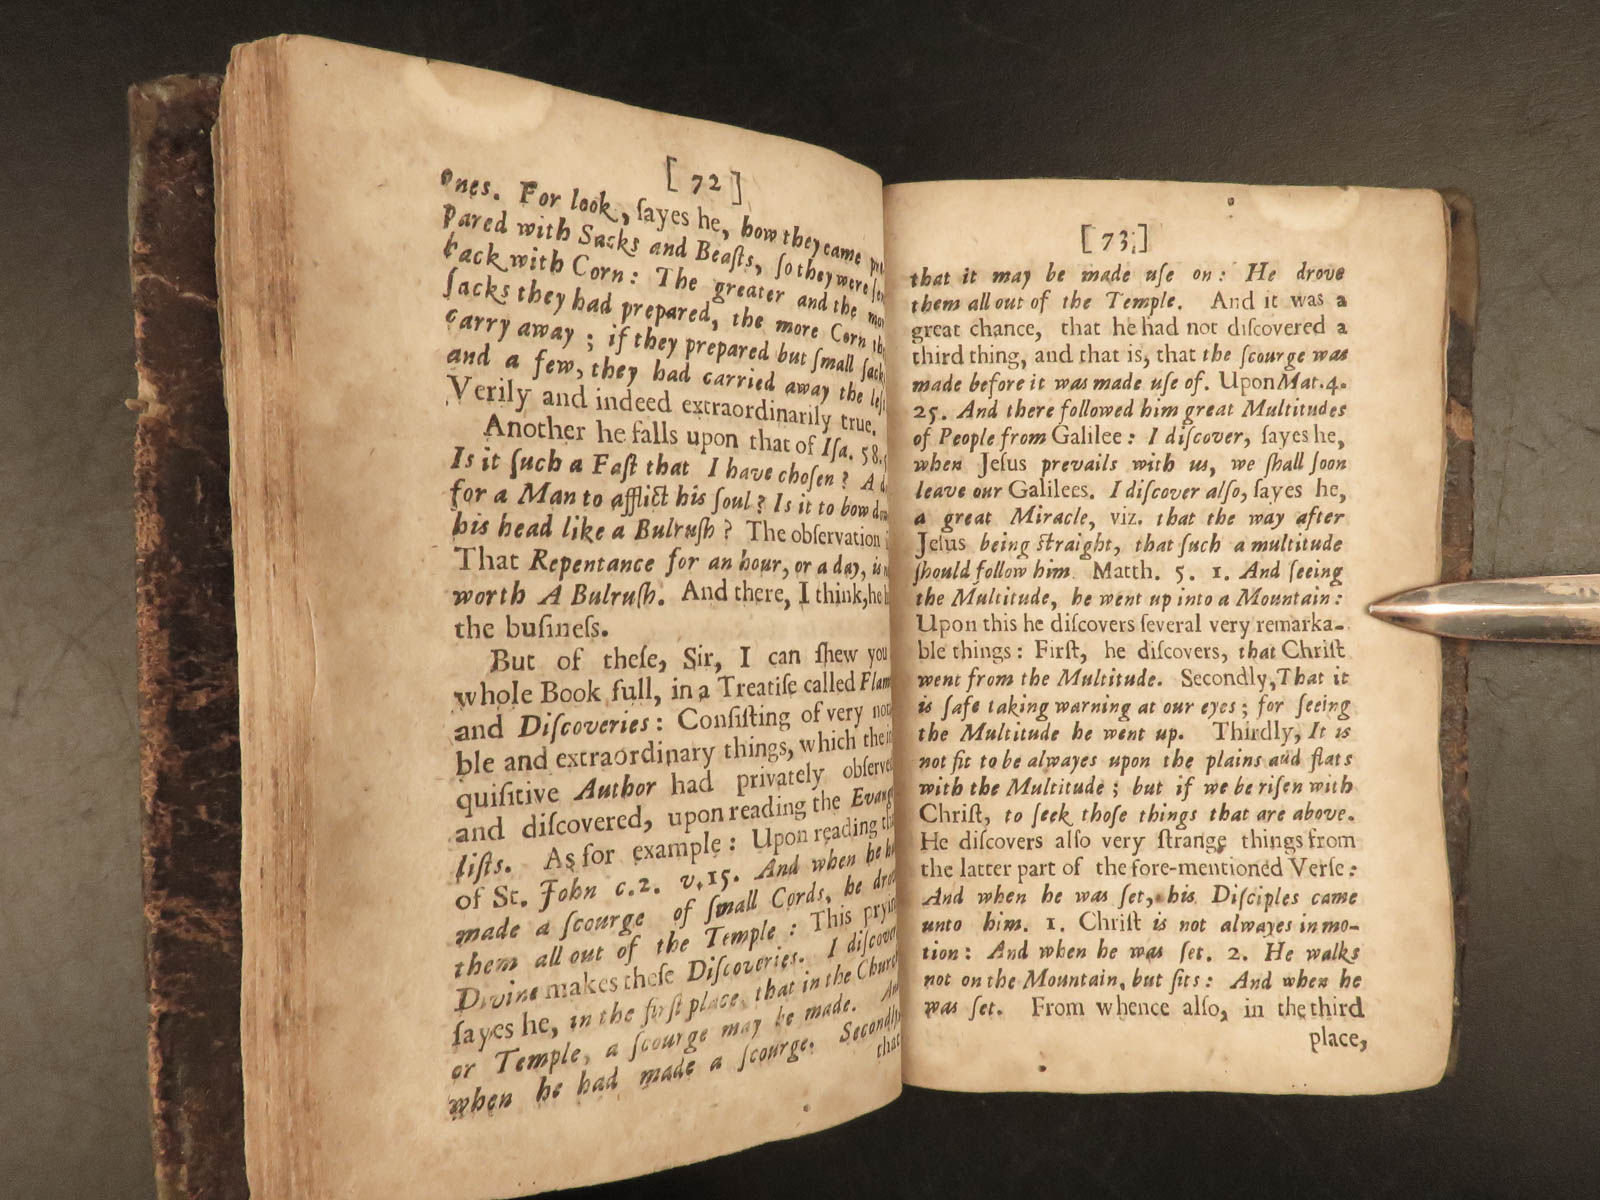 [ 72 ]
ones. For look, ſayes he, how they came
pared with Sacks and Beaſts, ſo they were
back with Corn: The greater and the
ſacks they had prepared, the more Corn
carry away ; if they prepared but ſmall
and a few, they had carried away the
Verily and indeed extraordinarily true.
Another he falls upon that of Iſa. 58.
Is it ſuch a Faſt that I have choſen? A
for a Man to afflict his ſoul? Is it to bow
his head like a Bulruſh? The obſervation
That Repentance for an hour, or a day, is
worth A Bulruſh. And there, I think, he
the buſineſs.
But of theſe, Sir, I can ſhew you
whole Book full, in a Treatiſe called
and Diſcoveries: Conſiſting of very
ble and extraordinary things, which the
quiſitive Author had privately
and diſcovered, upon reading the
liſts. As for example: Upon reading
of St. John c.2. v.15. And when he
made a ſcourge of ſmall Cords, he
them all out of the Temple: This
Divine makes theſe Diſcoveries. I
ſayes he, in the firſt place, that in the
or Temple, a ſcourge may be made.
when he had made a ſcourge. Secondly,
that
[ 73 ]
that it may be made uſe on: He drove
them all out of the Temple. And it was a
great chance, that he had not diſcovered a
third thing, and that is, that the ſcourge was
made before it was made uſe of. Upon Mat. 4.
25. And there followed him great Multitudes
of People from Galilee: I diſcover, ſayes he,
when Jeſus prevails with us, we ſhall ſoon
leave our Galilees. I diſcover alſo, ſayes he,
a great Miracle, viz. that the way after
Jeſus being ſtraight, that ſuch a multitude
ſhould follow him. Matth. 5. 1. And ſeeing
the Multitude, he went up into a Mountain:
Upon this he diſcovers ſeveral very remarka-
ble things: Firſt, he diſcovers, that Chriſt
went from the Multitude. Secondly, That it
is ſafe taking warning at our eyes; for ſeeing
the Multitude he went up. Thirdly, It is
not fit to be alwayes upon the plains aud flats
with the Multitude ; but if we be riſen with
Chriſt, to ſeek thoſe things that are above.
He diſcovers alſo very ſtrange things from
the latter part of the fore-mentioned Verſe:
And when he was ſet, his Diſciples came
unto him. 1. Chriſt is not alwayes in mo-
tion: And when he was ſet. 2. He walks
not on the Mountain, but ſits: And when he
was ſet. From whence alſo, in the third
place,